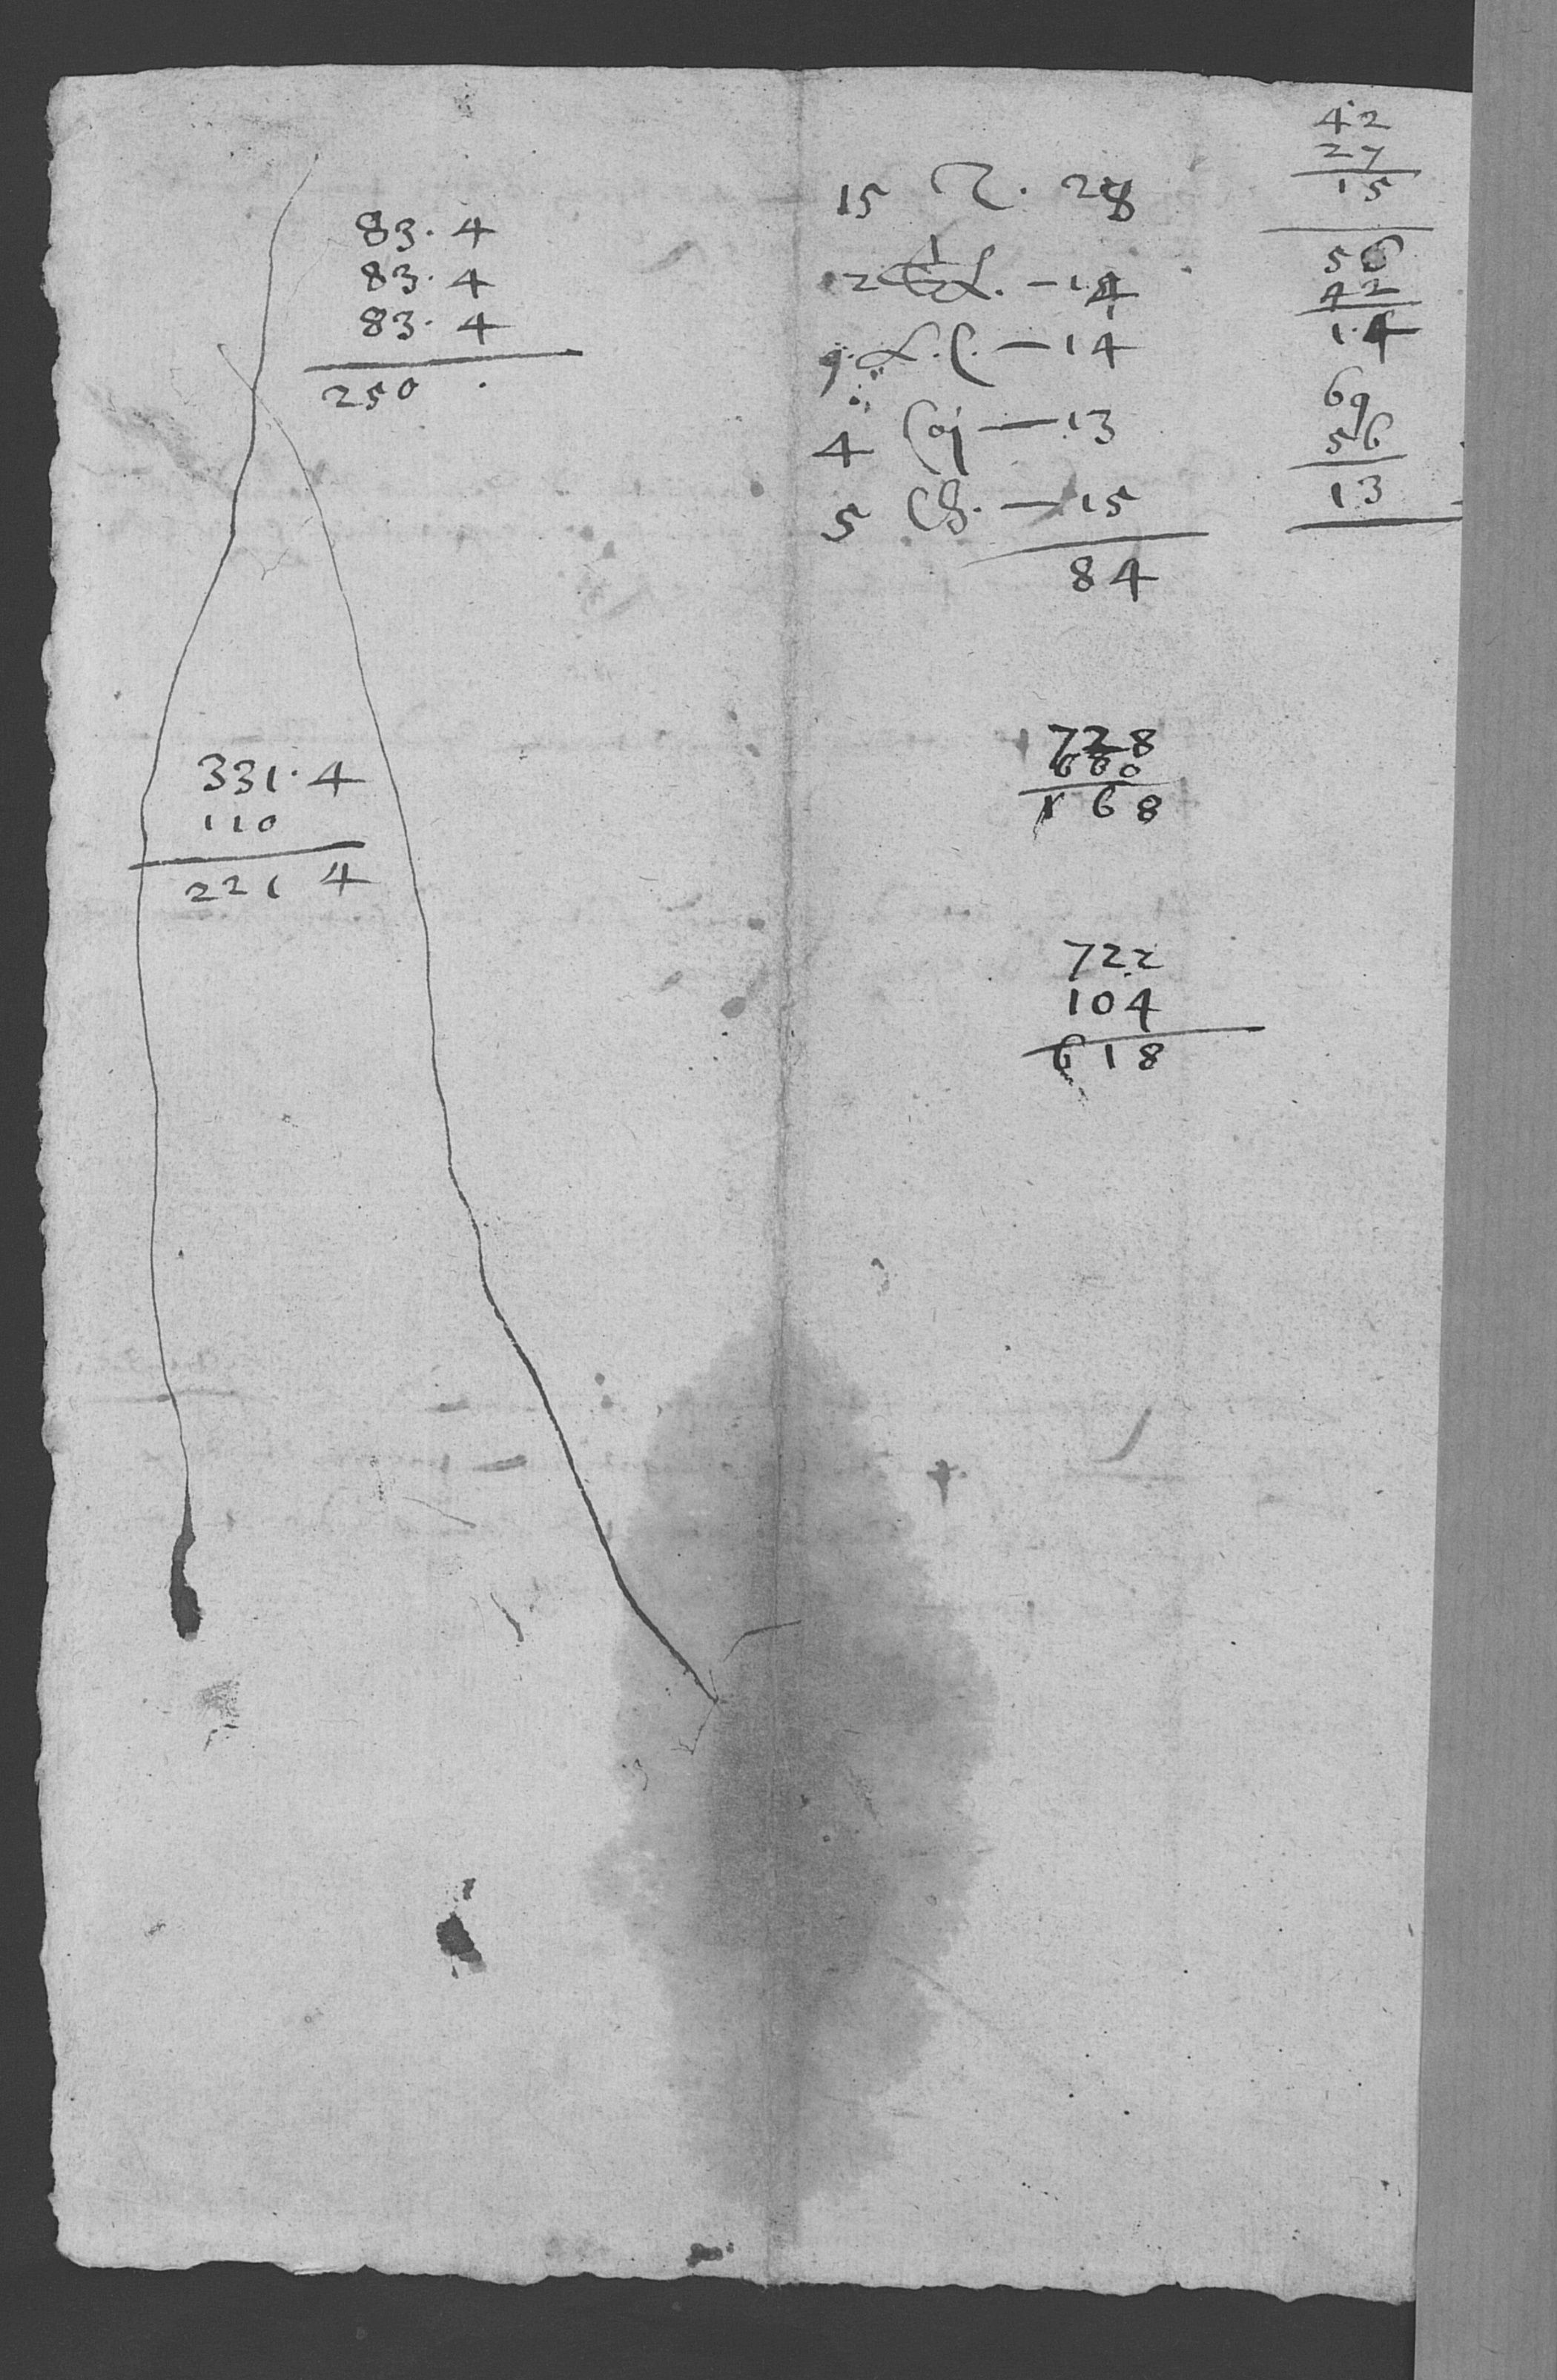 83. 4
83. 4
83. 4
250 .
331. 4
110
221 4
15 R. 28
2 L. - 14
9. L. C. - 14
4 Coj - 13
5 Ch. - 15
84
42
27
15
56
42
14
69
56
13
728
660
168
722
104
618